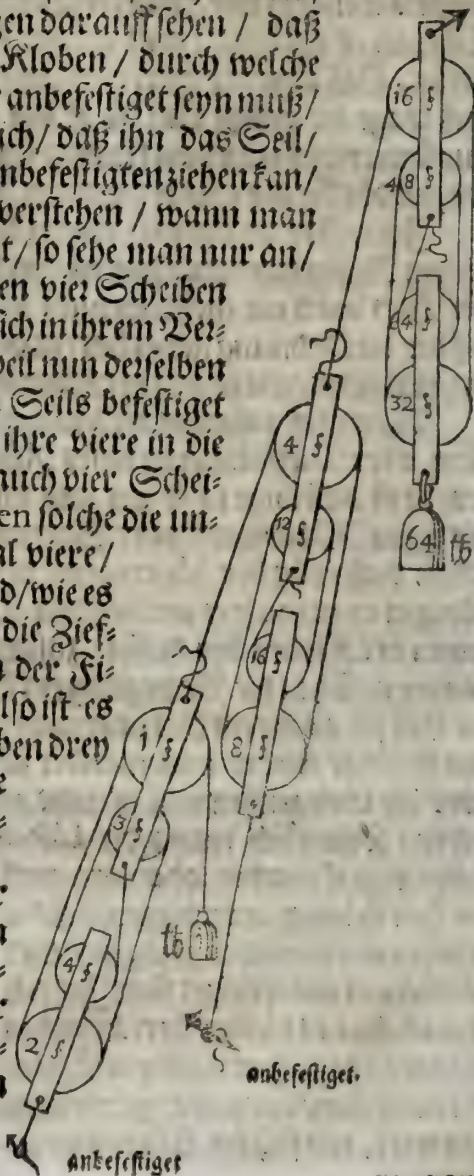 gen darauff sehen / daß
Kloben / durch welche
anbefestiget seyn muß /
ich / daß ihn das Seil /
nbefestigten ziehen kan /
verstehen / wann man
t / so sehe man nur an /
en vier Scheiben
sich in ihrem Ver⸗
weil nun derselben
Seils befestiget
ihre viere in die
auch vier Schei⸗
en solche die un⸗
al viere /
d / wie es
die Zief⸗
der Fi⸗
lso ist es
ben drey
16
4 8
64
32
64 ℔
4
12
16
8
1
3
4
2
℔
anbefestiget.
anbefestiget